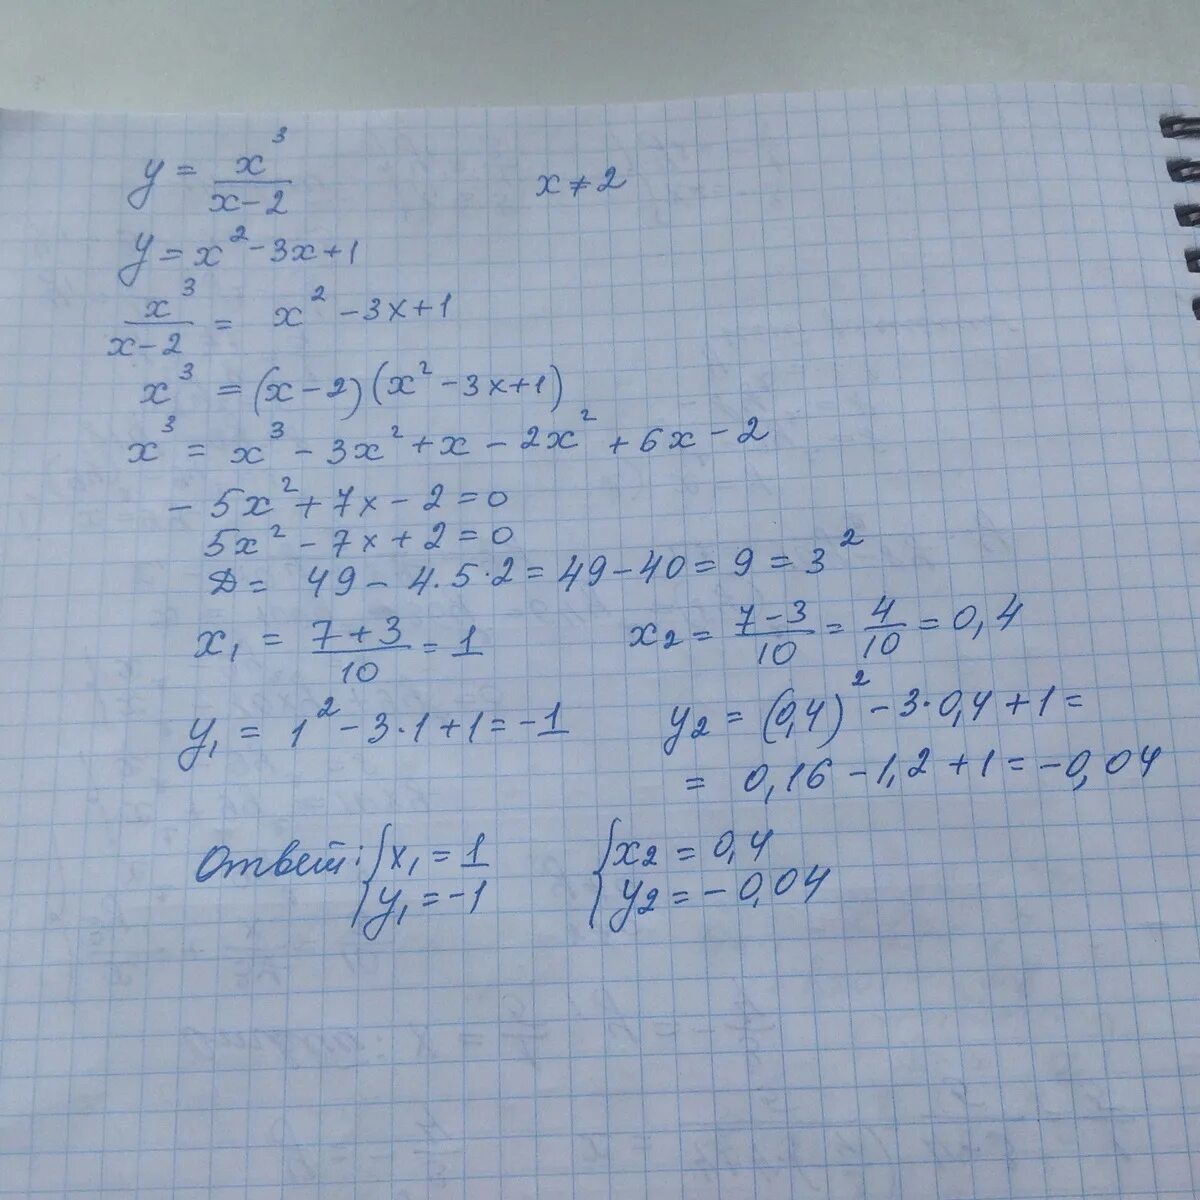 y = x³/(x-2)    x ≠ 2
y = x² - 3x + 1
x³/(x-2) = x² - 3x + 1
x³ = (x-2)(x² - 3x + 1)
x³ = x³ - 3x² + x - 2x² + 6x - 2
-5x² + 7x - 2 = 0
5x² - 7x + 2 = 0
D = 49 - 4·5·2 = 49 - 40 = 9 = 3²
x₁ = (7+3)/10 = 1    x₂ = (7-3)/10 = 4/10 = 0,4
y₁ = 1² - 3·1 + 1 = -1    y₂ = (0,4)² - 3·0,4 + 1 =
= 0,16 - 1,2 + 1 = -0,04
Ответ: { x₁ = 1    { x₂ = 0,4
y₁ = -1    y₂ = -0,04